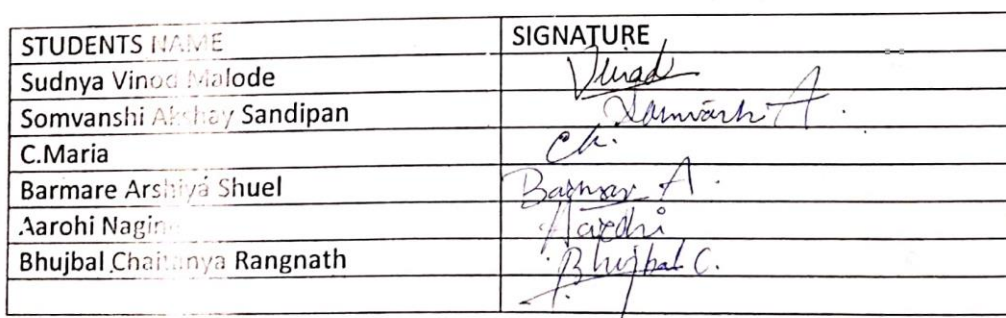 STUDENTS NAME SIGNATURE
Sudnya Vinod Malode
Somvanshi Akshay Sandipan A.
C.Maria Ch.
Barmare Arshiya Shuel A.
Aarohi Nagin Aarohi
Bhujbal Chaitanya Rangnath Bhujbal C.